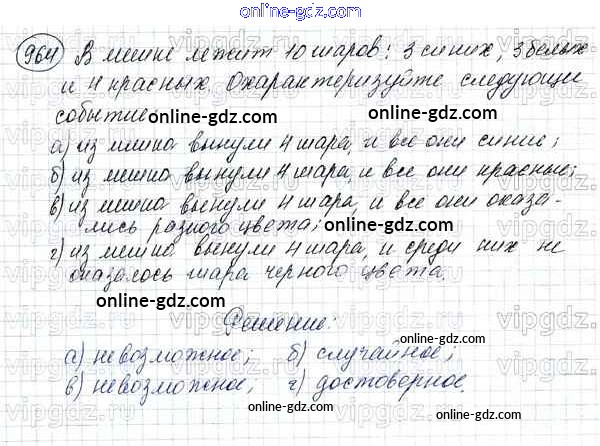 online-gdz.com
964 В мешке лежит 10 шаров: 3 синих, 3 белых
и 4 красных. Охарактеризуйте следующие
событие:
online-gdz.com
а) из мешка вынули 4 шара, и все они синие;
online-gdz.com
б) из мешка вынули 4 шара, и все они красные;
online-gdz.com
в) из мешка вынули 4 шара, и все они оказа-
лись разного цвета;
online-gdz.com
г) из мешка вынули 4 шара, и среди них не
оказалось шара черного цвета.
online-gdz.com
Решение:
online-gdz.com
а) невозможное; б) случайное;
online-gdz.com
в) невозможное; г) достоверное.
online-gdz.com
online-gdz.com
vipgdz.ru